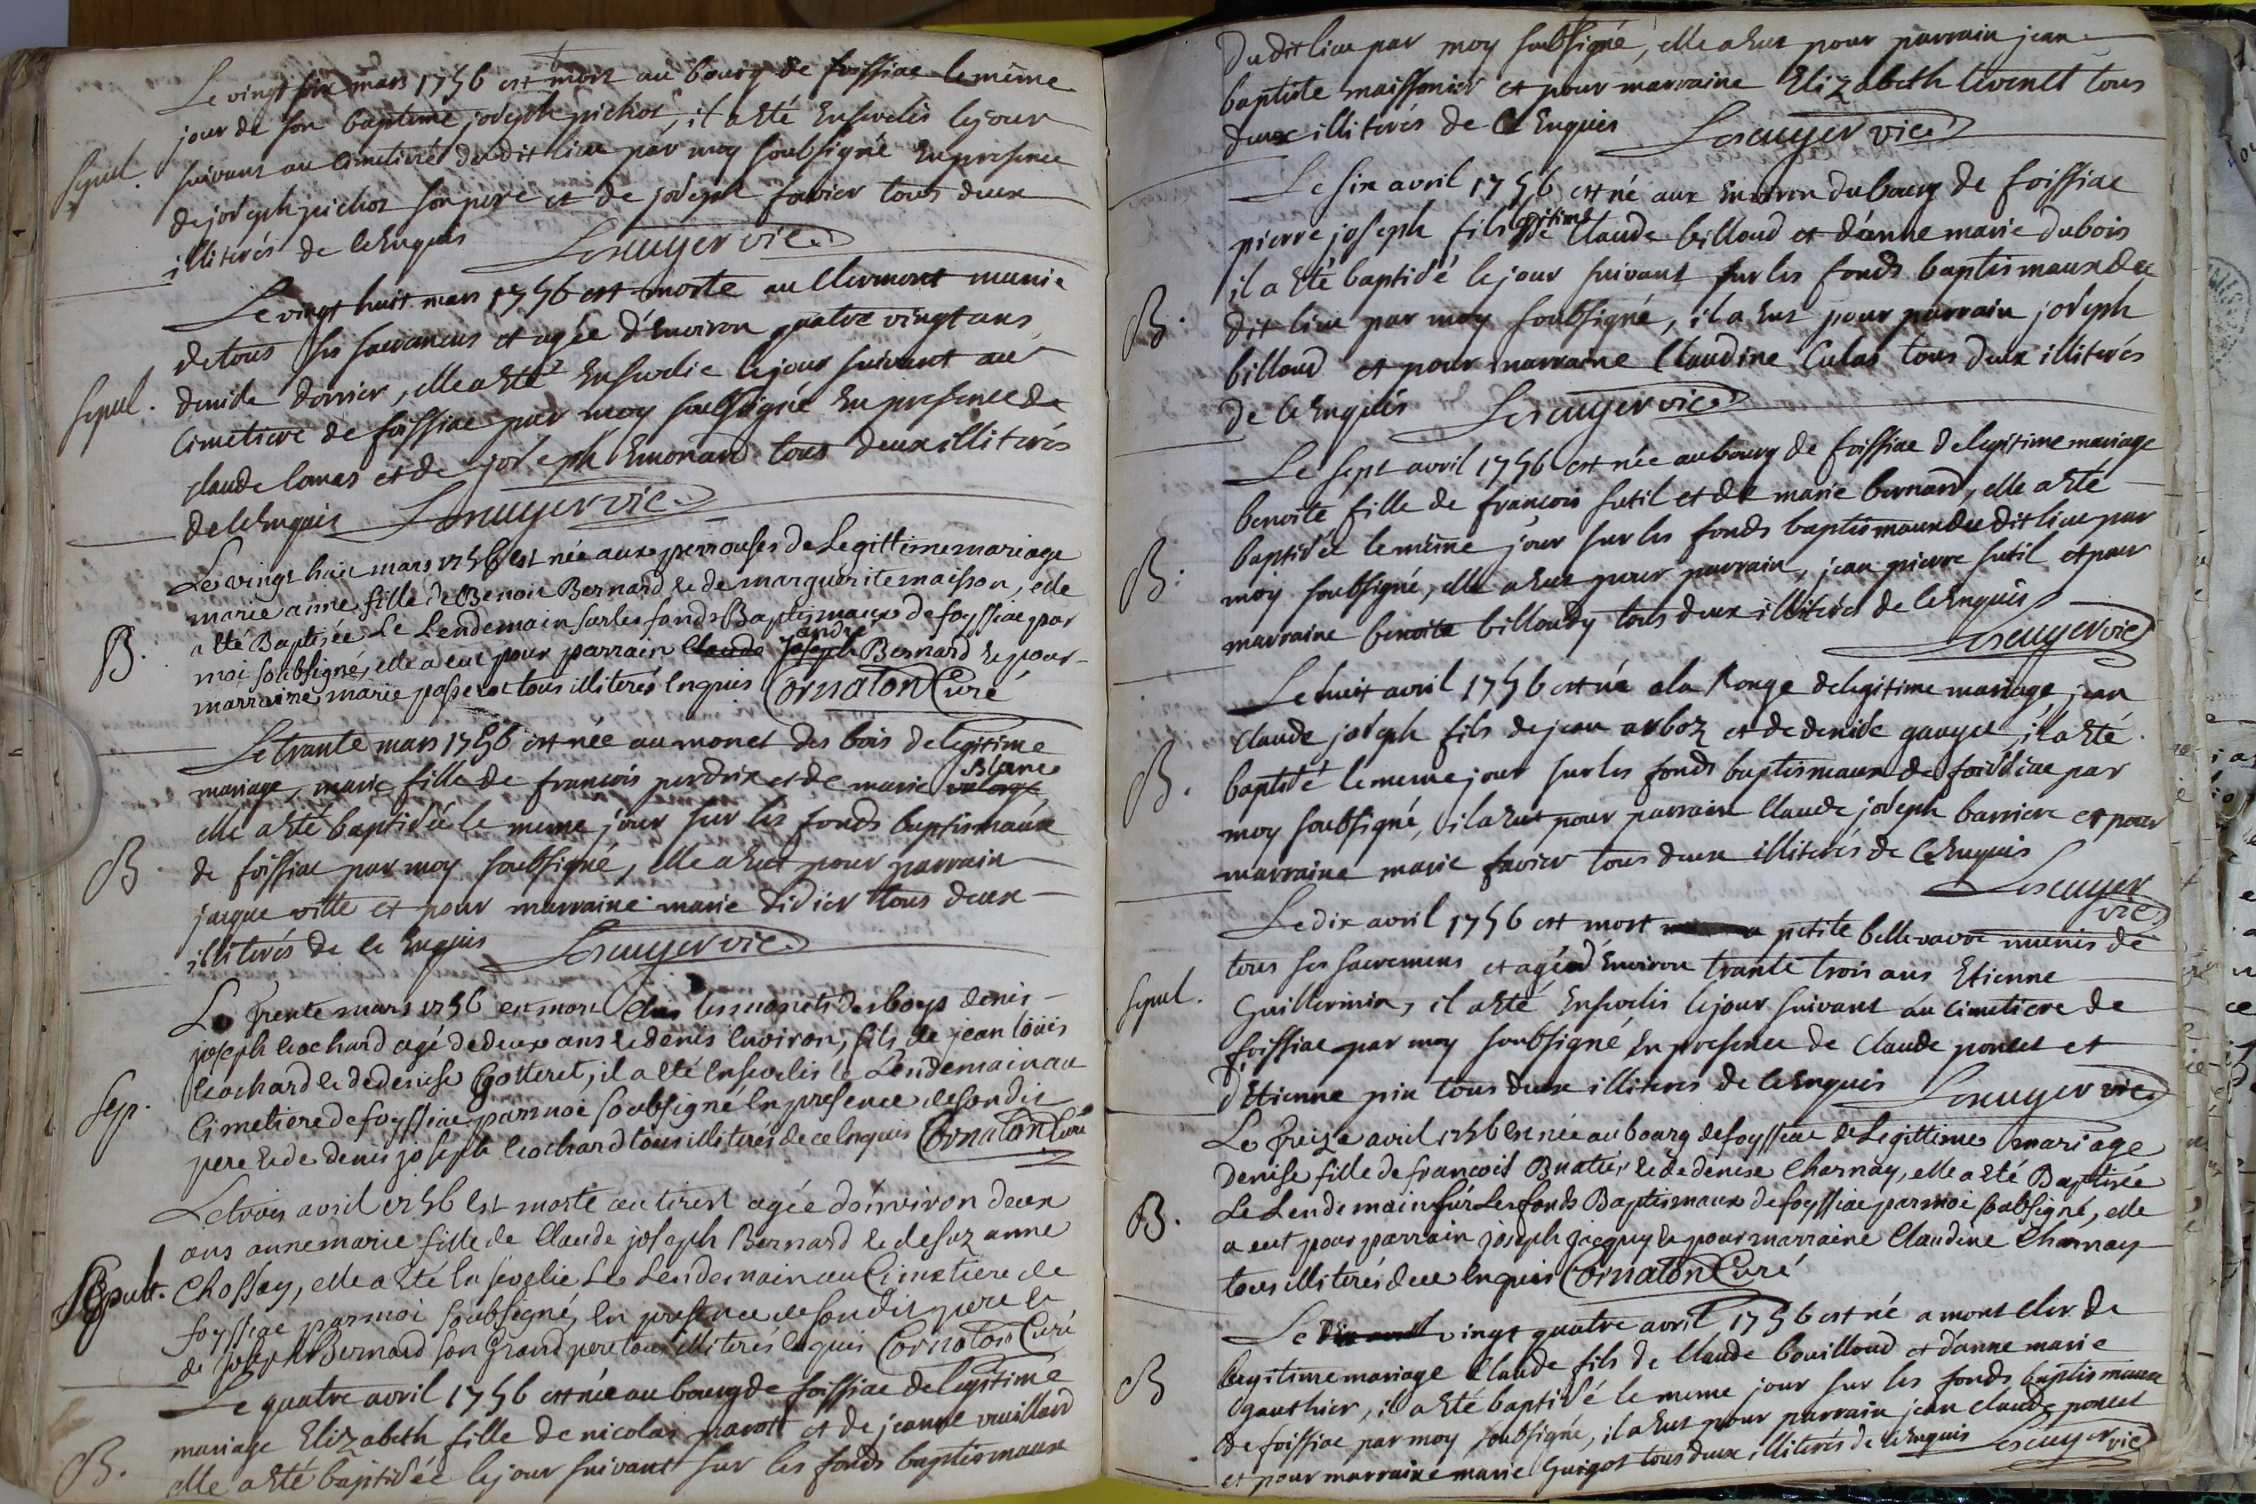 Le vingt six mars 1756 est mort au bourg de foissiac le même
jour de son baptême joseph pichot, il a eté ensevelis le jour
Sepul.
suivant au cimetiere du dit lieu par moy soubsigné en presence
de joseph pichot son pere et de joseph favier tous deux
illiterés de ce enquis Lescuyer vic.
Le vingt huit mars 1756 est morte au Clermont munie
de tous ses sacremens et agée d'environ quatre vingt ans
Sepul.
denise dorrier, elle a eté ensevelie le jour suivant au
cimetiere de foissiac par moy soubsigné en presence de
claude comas et de joseph Emonard tous deux illiterés
de ce enquis Lescuyer vic.
Le vingt huit mars 1756 est née aux perrouses de Legittime mariage
marie aime fille de Benoit Bernard et de marguerite maisson, elle
B.
a eté Baptisée Le Lendemain sur les fonds Baptismaux de foyssiac par
andré
moi soubsigné, elle a eut pour parrain Claude joseph Bernard et pour
marraine marie passerat tous illiterés enquis Cornaton Curé
Le trante mars 1756 est née au monet des bois de legitime
Blanc
mariage, marie fille de francois perdrix et de marie
elle a eté baptisée le meme jour sur les fonds baptismaux
B.
de foissiac par moy soubsigné, elle a eut pour parrain
jacque ville et pour marraine marie didier tous deux
illiterés de ce enquis Lescuyer vic.
Le trente mars 1756 est mort les monets des boys denis
joseph Cochard agé de deux ans et demis environ, fils de jean loüis
Cochard et de denise Gotteret, il a eté ensevelis le Lendemain au
Sep.
Cimetiere de foyssiac par moi soubsigné en presence de son dit
pere et de denis joseph Cochard tous illiterés de ce enquis Cornaton Curé
Le trois avril 1756 est morte au tiret agée d'environ deux
ans anne marie fille de Claude joseph Bernard et de suz anne
Sepult.
Chossay, elle a eté ensevelie Le Lendemain au Cimetiere de
foyssiac par moi soubsigné en presence de son dit pere et
de joseph Bernard son Grand pere tous illiterés enquis Cornaton Curé
Le quatre avril 1756 est née au bourg de foissiac de legitime
mariage Elizabeth fille de nicolas pravot et de jeanne vuillard
B.
elle a eté baptisée le jour suivant sur les fonds baptismaux
du dit lieu par moy soubsigné, elle a eut pour parrain jean
baptiste maissonier et pour marraine Elizabeth tous
deux illiterés de ce enquis Lescuyer vic.
Le six avril 1756 est né aux environ du bourg de foissiac
pierre joseph fils legitime de Claude billoud et d'anne marie dubois
il a eté baptisé le jour suivant sur les fonds baptismaux du
B.
dit lieu par moy soubsigné, il a eut pour parrain joseph
billoud et pour marraine Claudine Culas tous deux illiterés
de ce enquis Lescuyer vic.
Le sept avril 1756 est née au bourg de foissiac de legitime mariage
benoite fille de francois sutil et de marie bernard, elle a eté
baptisée le même jour sur les fonds baptismaux du dit lieu par
B.
moy soubsigné, elle a eut pour parrain, jean pierre sutil et pour
marraine benoite billoudy tous deux illiterés de ce enquis
Lescuyer vic
Le huit avril 1756 est né a la Ronge de legitime mariage, jean
claude joseph fils de jean arboz et de denise gauget, il a eté
B.
baptisé le meme jour sur les fonds baptismaux de foissiac par
moy soubsigné, il a eut pour parrain Claude joseph barriere et pour
marraine marie favier tous deux illiterés de ce enquis
Lescuyer
vic
Le dix avril 1756 est mort a petite bellevavre munis de
tous ses sacremens et agé d'environ trante trois ans Etienne
Sepul.
Guillermin, il a eté ensevelis le jour suivant au cimetiere de
foissiac par moy soubsigné en presence de Claude poncet et
d'Etienne pin tous deux illiterés de ce enquis Lescuyer vic.
Le treize avril 1756 est née au bourg de foyssiac de Legittime mariage
denise fille de francois Buatier et de denise Charnay, elle a eté Baptisée
B.
Le Lendemain sur Les fonds Baptismaux de foyssiac par moi soubsigné, elle
a eut pour parrain joseph jacquy et pour marraine Claudine Charnay
tous illiterés de ce enquis Cornaton Curé
Le dix avril vingt quatre avril 1756 est né a mont cler de
B
Legitime mariage Claude fils de Claude bouilloud et d'anne marie
Gauthier, il a eté baptisé le meme jour sur les fonds baptismaux
de foissiac par moy soubsigné, il a eut pour parrain jean claude poncet
et pour marraine marie Guigot tous deux illiterés de ce enquis Lescuyer vic